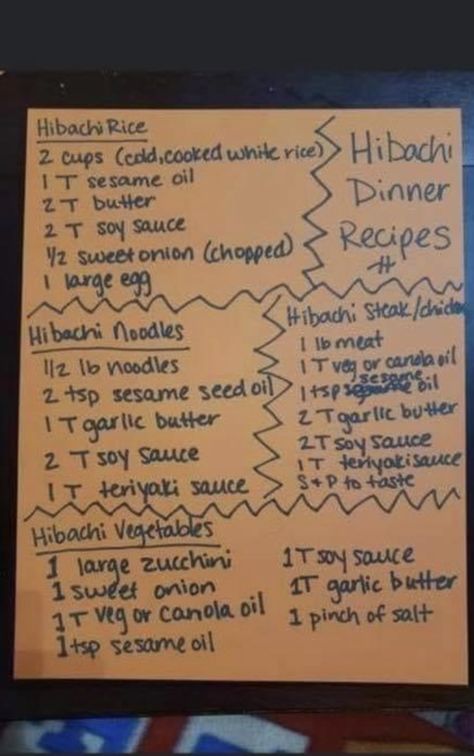 Hibachi Rice
2 cups (cold, cooked white rice)
1 T sesame oil
2 T butter
2 T soy sauce
1/2 sweet onion (chopped)
1 large egg
Hibachi
Dinner
Recipes
Hibachi Noodles
1/2 lb noodles
2 tsp sesame seed oil
1 T garlic butter
2 T soy sauce
1 T teriyaki sauce
Hibachi Steak/chicken
1 lb meat
1 T veg or canola oil
1 tsp sesame oil
2 T garlic butter
2T soy sauce
1 T teriyaki sauce
S + P to taste
Hibachi Vegetables
1 large zucchini
1 sweet onion
1 T veg or canola oil
1 tsp sesame oil
1T soy sauce
1T garlic butter
1 pinch of salt